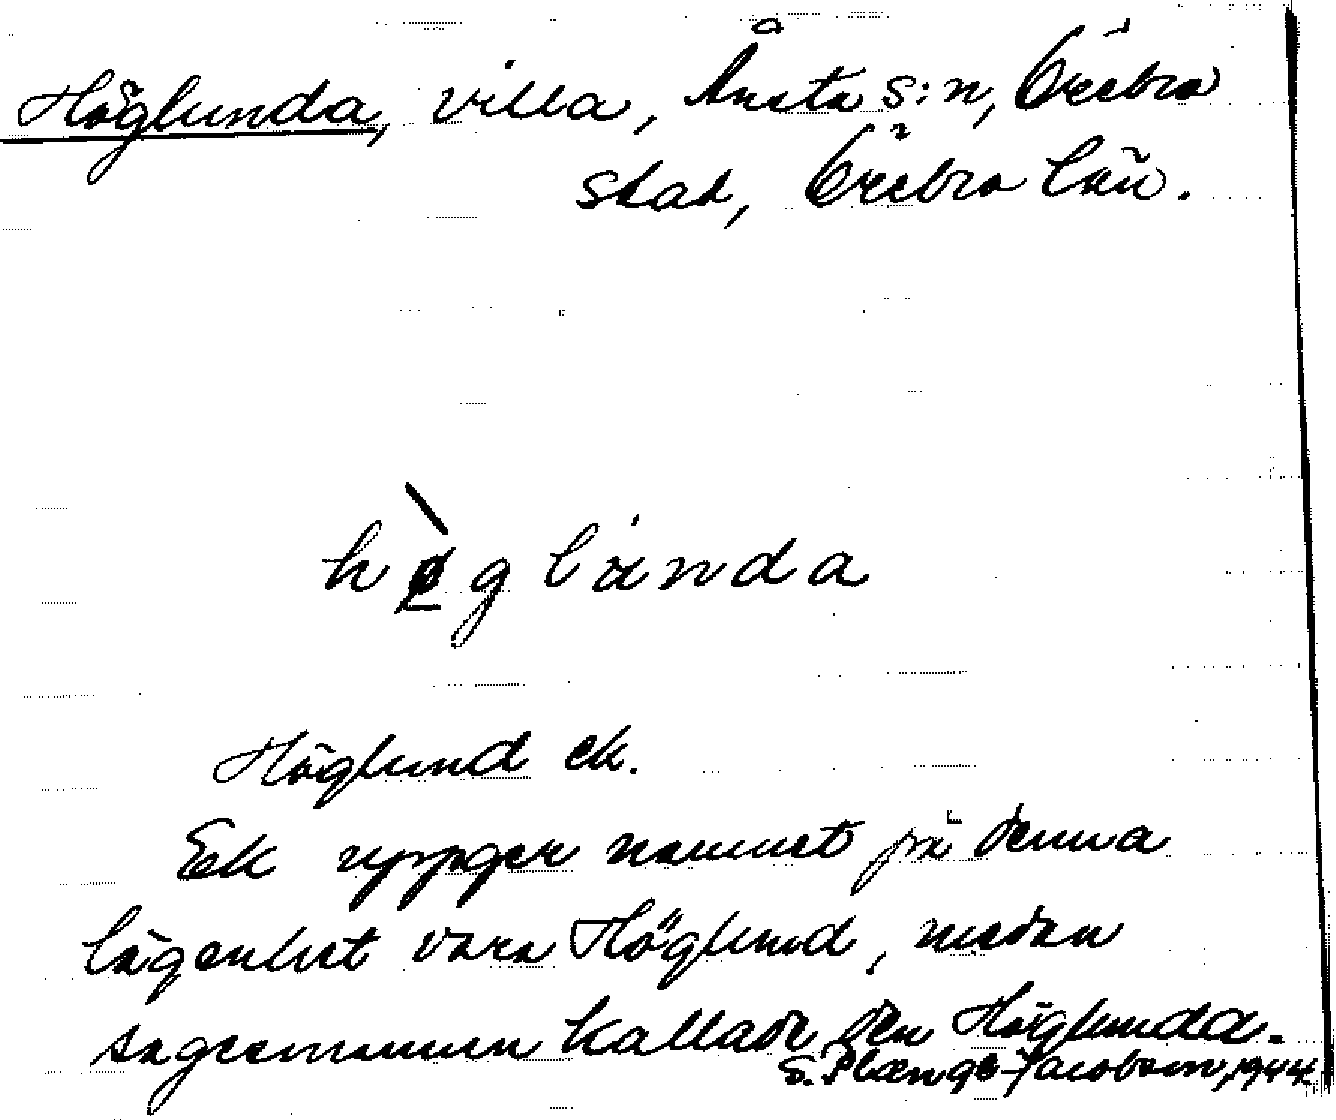 Höglunda, villa, Ånsta s:n, Örebro
stad, Örebro län.
Höglund ek.
Ek uppger namnet på denna
lägenhet vara Höglund, medan
sagesmannen kallade den Höglunda.
S. Plænge-Jacobson, 1944.